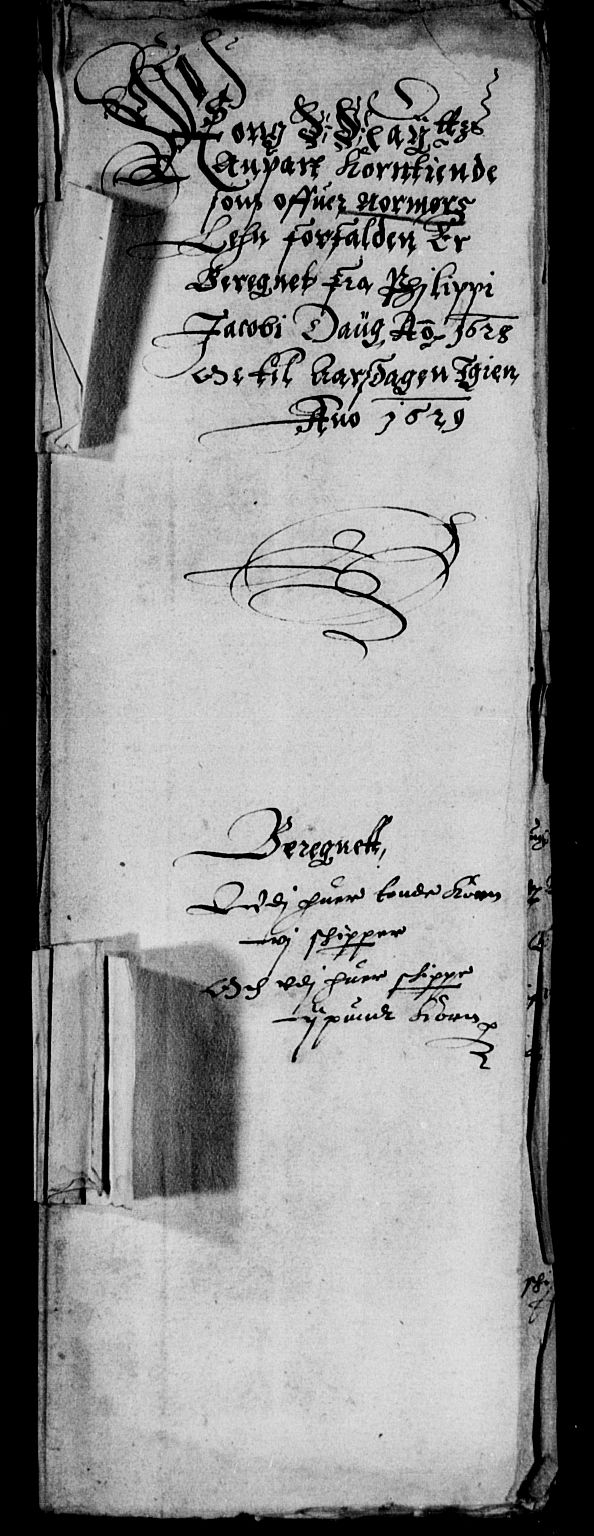 Kong: Maÿtts
Anpart Korntiende
som offuer Normørs
Lehn forfalden Er
Beregnet fra Philippi
Jacobi Daüg Ao 1628
Oc til Aarsdagen Igien
Ano 1629
Beregnett,
Vdj huer tonde Korn
vj skipper
Och vdj huer skippe
ij pundt Korn